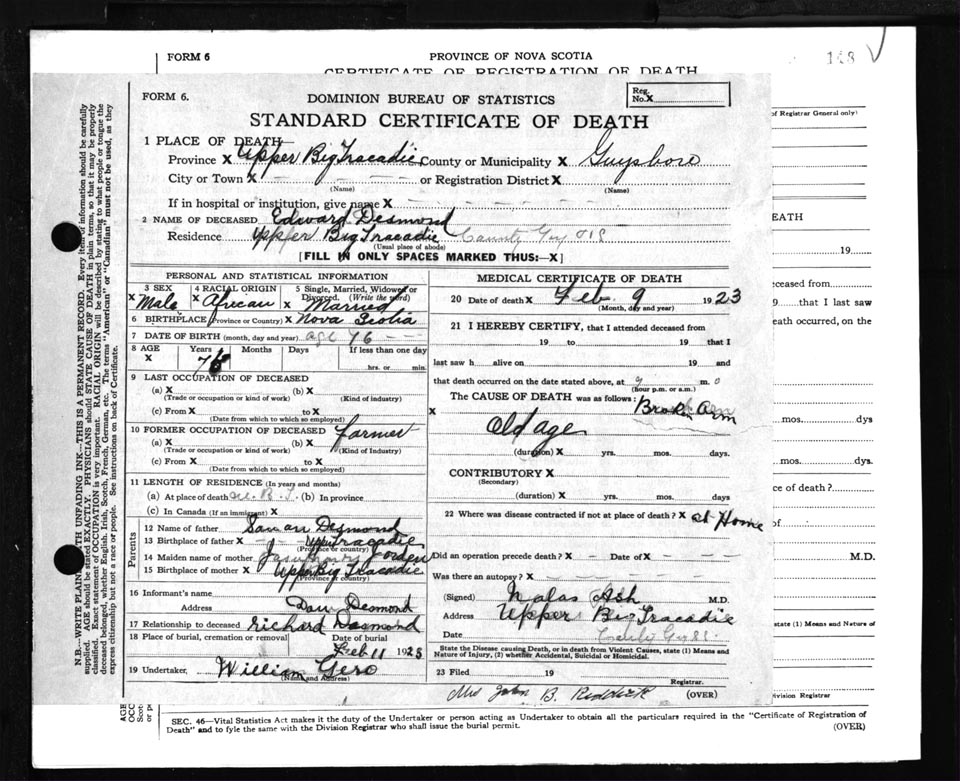 FORM 6
PROVINCE OF NOVA SCOTIA
148
CERTIFICATE OF REGISTRATION OF DEATH
FORM 6.
DOMINION BUREAU OF STATISTICS
Reg. No. X
STANDARD CERTIFICATE OF DEATH
of Registrar General only)
1 PLACE OF DEATH
Province X Upper Big Tracadie County or Municipality X Guysboro
City or Town X or Registration District X
(Name) (Name)
If in hospital or institution, give name X
2 NAME OF DECEASED Edward Desmond
Residence Upper Big Tracadie County Guy
(Usual place of abode)
[FILL IN ONLY SPACES MARKED THUS:—X]
PERSONAL AND STATISTICAL INFORMATION
3 SEX 4 RACIAL ORIGIN 5 Single, Married, Widowed or Divorced. (Write the word)
X Male X African X Married
6 BIRTHPLACE (Province or Country) X Nova Scotia
7 DATE OF BIRTH (month, day and year) age 76
8 AGE Years Months Days If less than one day
X 76 hrs. or min.
9 LAST OCCUPATION OF DECEASED
(a) X (b) X
(Trade or occupation or kind of work) (Kind of Industry)
(c) From X to X
(Date from which to which so employed)
10 FORMER OCCUPATION OF DECEASED farmer
(a) X (b) X
(Trade or occupation or kind of work) (Kind of Industry)
(c) From X to X
(Date from which to which so employed)
11 LENGTH OF RESIDENCE (In years and months)
(a) At place of death B. T. (b) In province
(c) In Canada (If an immigrant) X
Parents
12 Name of father Desmond
13 Birthplace of father X Upper Tracadie
(Province or country)
14 Maiden name of mother
15 Birthplace of mother X Upper Big Tracadie
(Province or country)
16 Informant's name
Address Dan Desmond
17 Relationship to deceased Richard Desmond
18 Place of burial, cremation or removal Date of burial
Feb 11 1923
19 Undertaker, William Gero
(Name and Address)
MEDICAL CERTIFICATE OF DEATH
20 Date of death X Feb. 9 1923
(Month, day and year)
21 I HEREBY CERTIFY, that I attended deceased from
19 to 19 that I
last saw h alive on 19 and
that death occurred on the date stated above, at 9 m.
(hour p.m. or a.m.)
The CAUSE OF DEATH was as follows: Broken Arm
X Old age
(duration) X yrs. mos. days.
CONTRIBUTORY X
(Secondary)
(duration) X yrs. mos. days.
22 Where was disease contracted if not at place of death? X at Home
Did an operation precede death? X Date of X
Was there an autopsy? X
(Signed) Nalas Ash M.D.
Address Upper Big Tracadie
Date
State the Disease causing Death, or in death from Violent Causes, state (1) Means and
Nature of Injury, (2) whether Accidental, Suicidal or Homicidal.
23 Filed 19
Registrar.
Mrs John B. Reddick (OVER)
N.B.—WRITE PLAINLY WITH UNFADING INK—THIS IS A PERMANENT RECORD. Every item of information should be carefully
supplied. AGE should be stated EXACTLY. PHYSICIANS should STATE CAUSE OF DEATH in plain terms, so that it may be properly
classified. Exact statement of OCCUPATION is very important. RACIAL ORIGIN will be described by stating to what people or tongue the
deceased belonged, whether English, Irish, Scotch, French, German, etc. The terms "American" or "Canadian" must not be used, as they
express citizenship but not a race or people. See instructions on back of Certificate.
DEATH
19
deceased from
9 that I last saw
eath occurred, on the
mos. dys
mos. dys.
ce of death?
of
M.D.
state (1) Means and Nature of
Division Registrar
AGE
OCC
Sco
or p
SEC. 46—Vital Statistics Act makes it the duty of the Undertaker or person acting as Undertaker to obtain all the particulars required in the "Certificate of Registration of
Death" and to fyle the same with the Division Registrar who shall issue the burial permit.
(OVER)